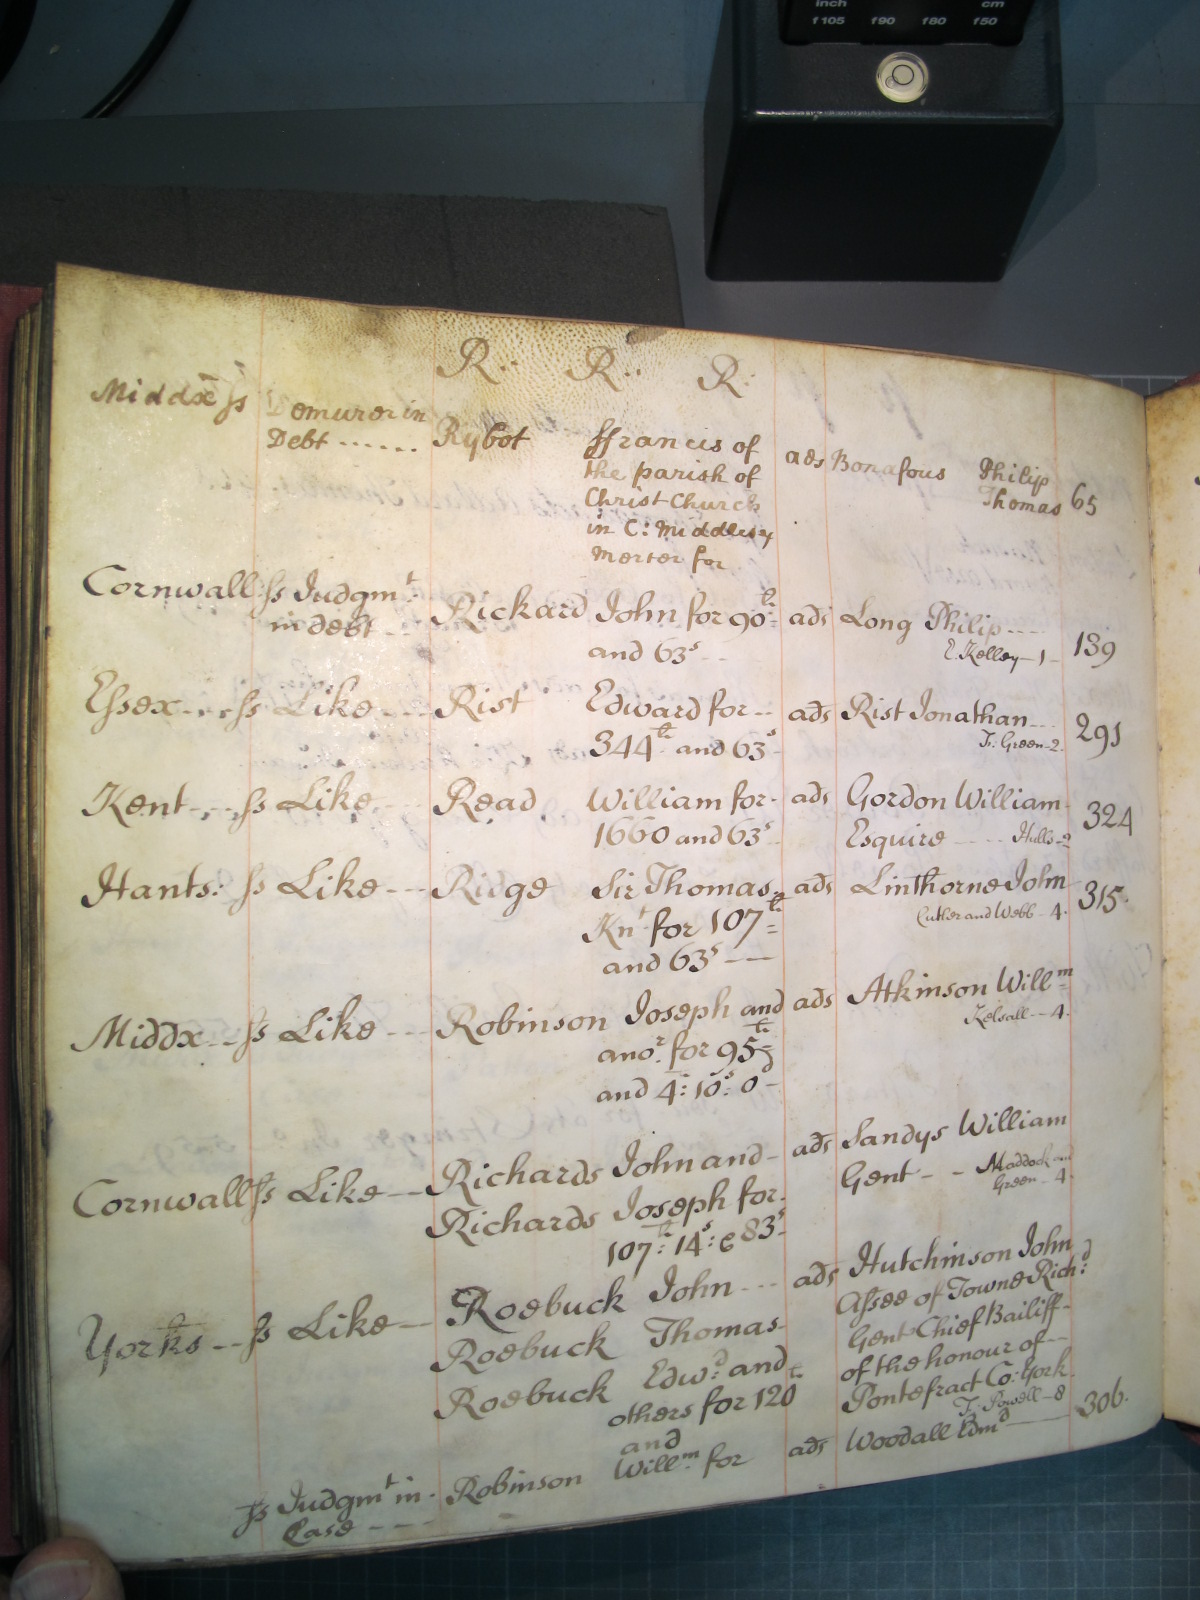 inch cm
f105 f90 f80 f50
R: R: R:
Middx ss Demurer in Debt ...... Rybot ffrancis of ads Bonafous Philip
the parish of Thomas 65
Christ Church
in C: Middlesex
Merter for
Cornwall ss Judgmt in debt Rickard John for 90li ads Long Philip
and 63s E. Kelley 1 139
Essex ss Like Rist Edward for ads Rist Jonathan
344li and 63s T: Green 2 291
Kent ss Like Read William for ads Gordon William
1660 and 63s Esquire Hulls 2 324
Hants: ss Like Ridge Sir Thomas ads Linthorne John
Knt for 107li Cuther and Webb 4 315
and 63s
Middx ss Like Robinson Joseph and ads Atkinson Willm
anor for 95li Kelsall 4
and 4: 10s: 0d
Cornwall ss Like Richards John and ads Sandys William
Richards Joseph for Gent Maddock and
107li: 14s: & 83s Green 4
Yorks ss Like Roebuck John ads Hutchinson John
Roebuck Thomas Assee of Towne Richd
Roebuck Edwd and Gent Chief Bailiff
others for 120li of the honour of
and Pontefract Co: York
T: Powell 8
ss Judgmt in Case Robinson Willm for ads Woodall Edmd 306